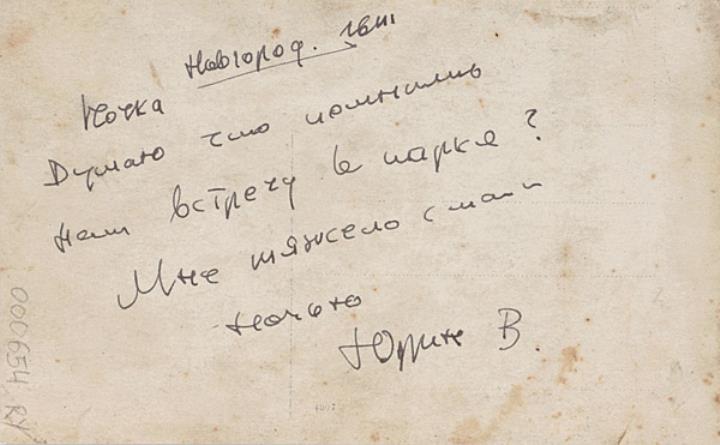 Новгород.
Ночка
Думаю что помнишь
нашу встречу в парке?
Мне тяжело с
ночью
Юрин В.
000654 RY